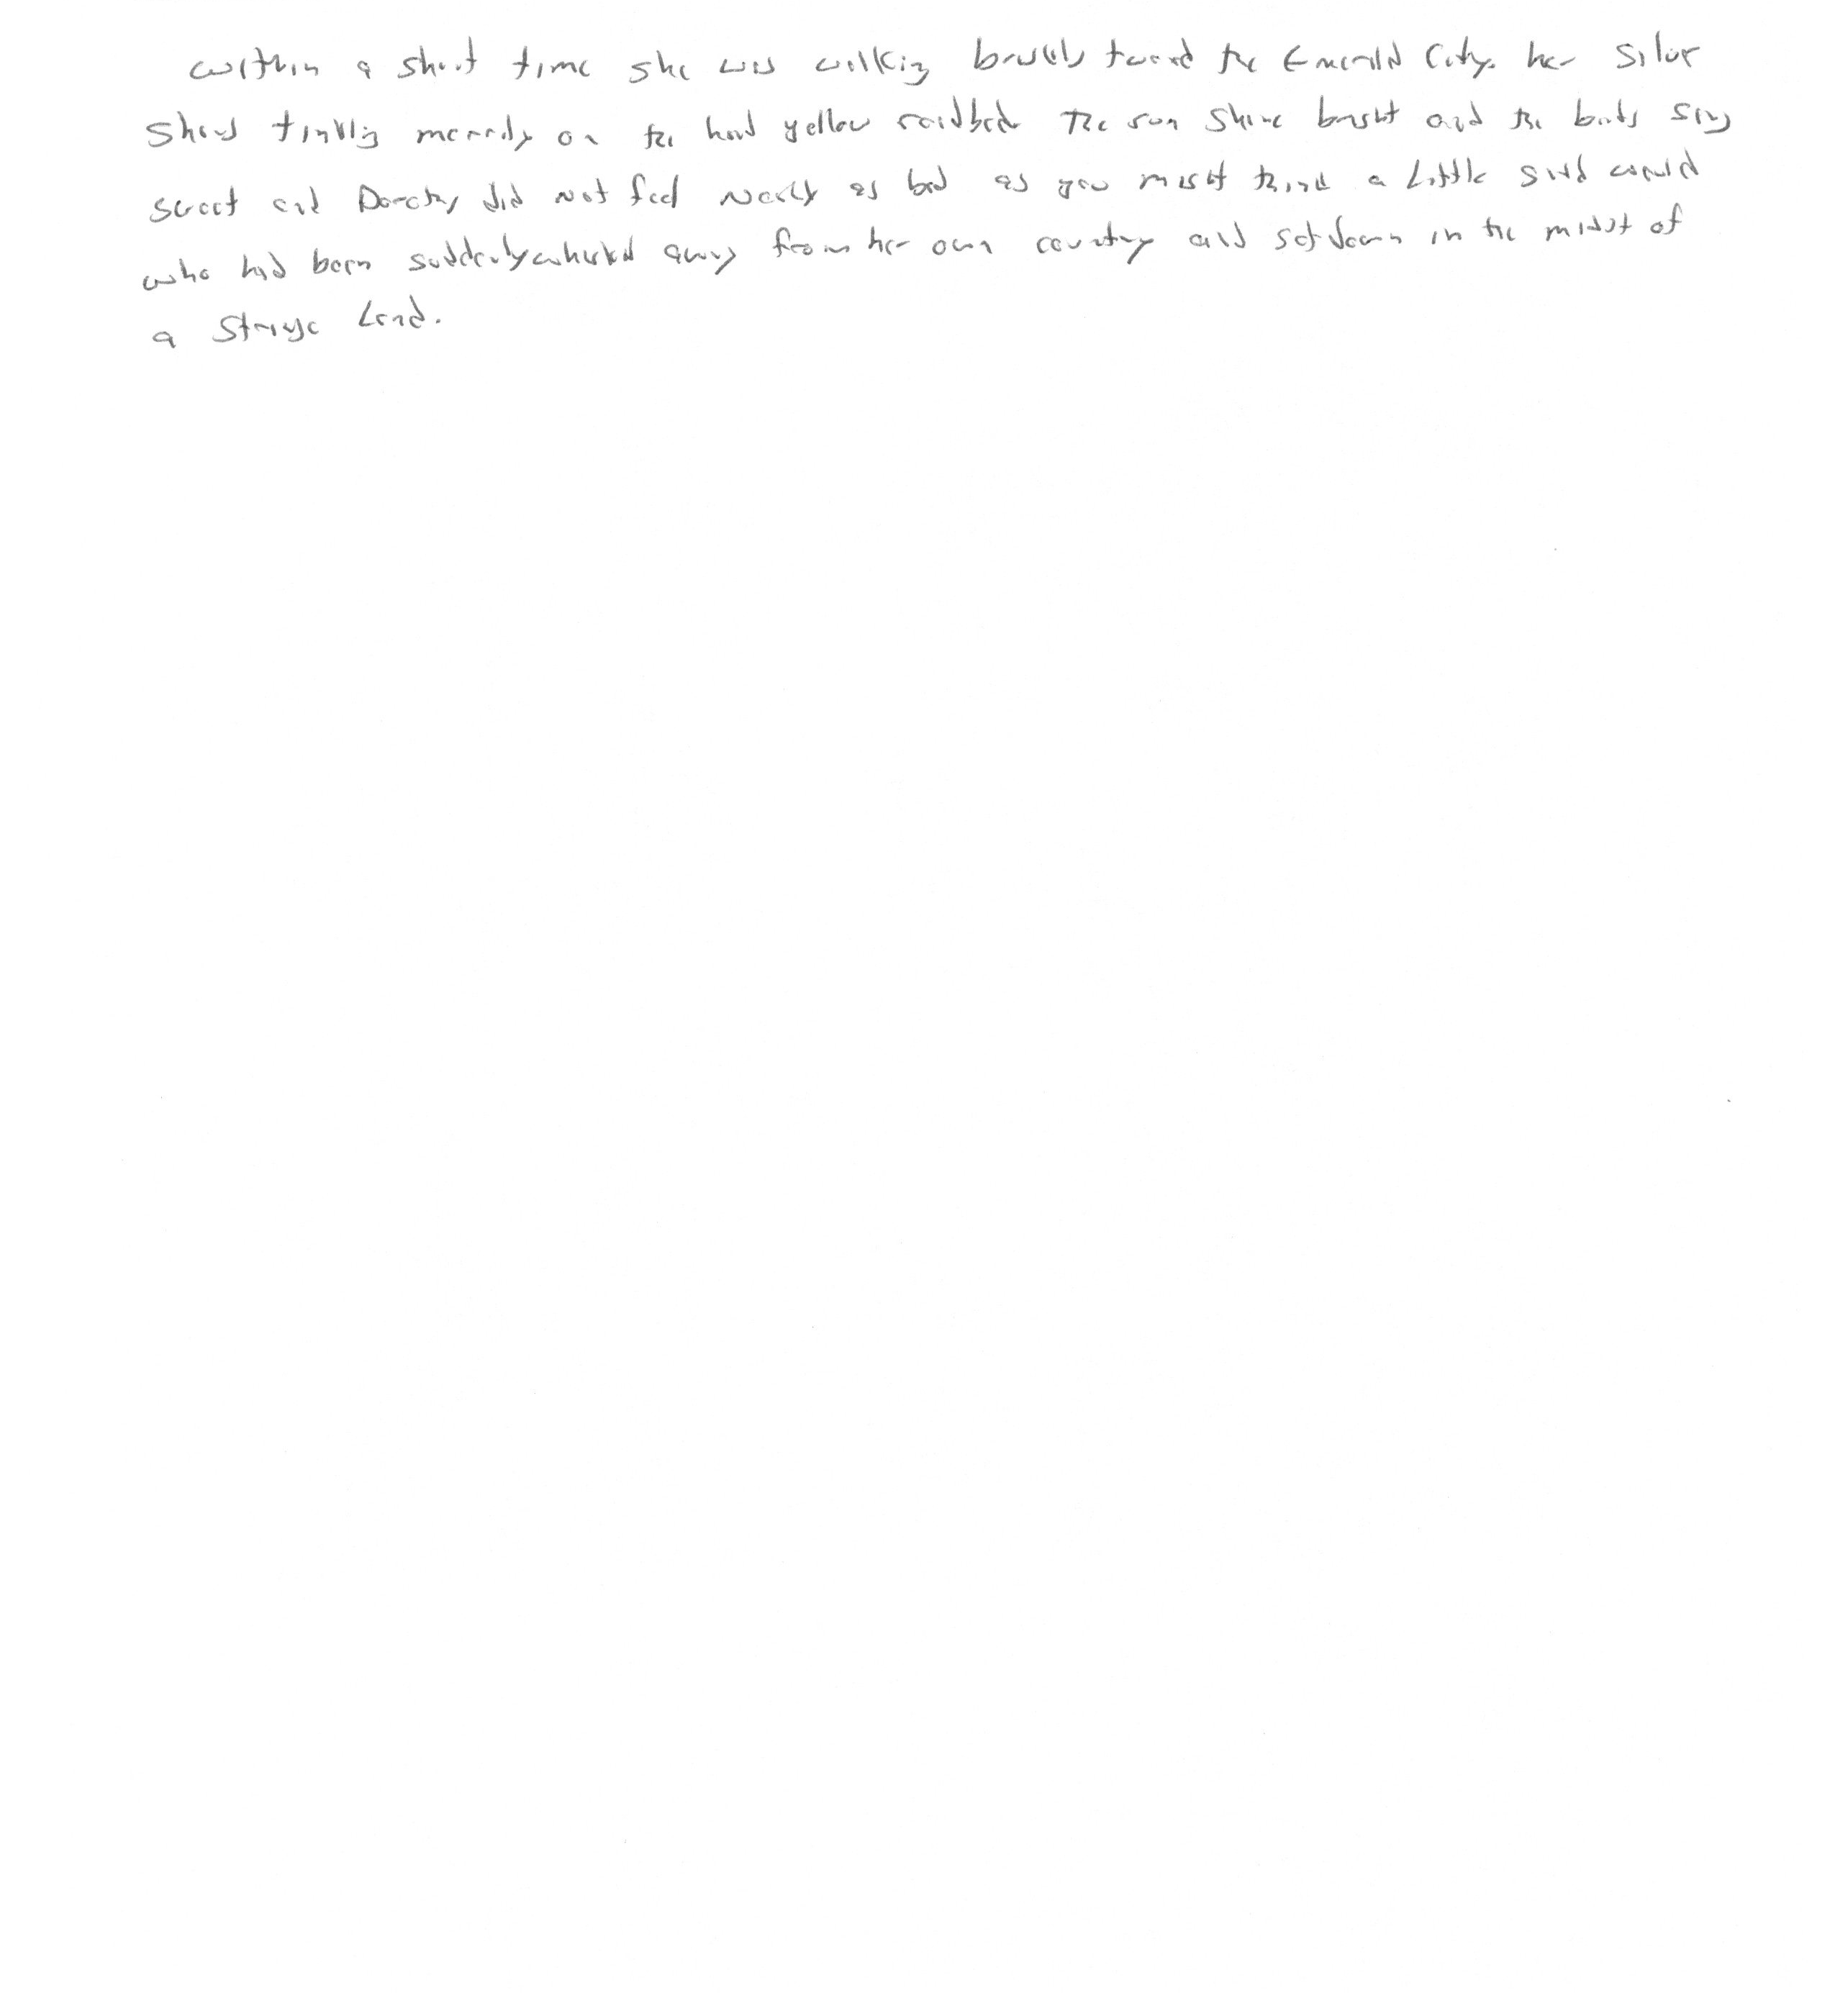 Within a short time she was walking briskly toward the Emerald City, her Silver
Shoes tinkling merrily on the hard yellow roadbed. The sun shine bright and the birds sing
sweet and Dorothy did not feel nearly as bad as you might think a little girl would
who had been suddenly whisked away from her own country and set down in the midst of
a strange land.